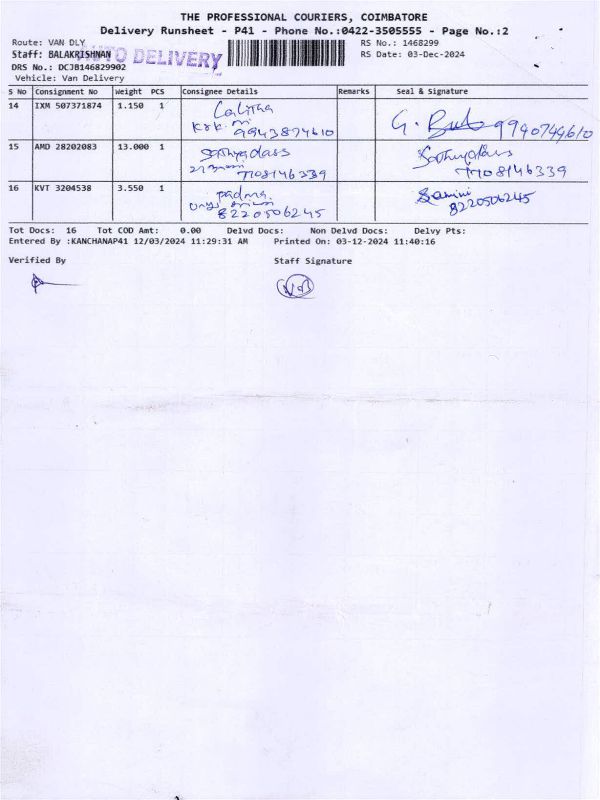 THE PROFESSIONAL COURIERS, COIMBATORE
Delivery Runsheet - P41 - Phone No.:0422-3505555 - Page No.:2
Route: VAN DLY RS No.: 1468299
Staff: BALAKRISHNAN AUTO DELIVERY RS Date: 03-Dec-2024
DRS No.: DCJB146829902
Vehicle: Van Delivery
S No Consignment No Weight PCS Consignee Details Remarks Seal & Signature
14 IXM 507371874 1.150 1 Lalitha
9943874610 G. 9940749610
15 AMD 28202083 13.000 1 Sathyadass Sathyadass
7708146339 7708146339
16 KVT 3204538 3.550 1 padma
8220506245 8220506245
Tot Docs: 16 Tot COD Amt: 0.00 Delvd Docs: Non Delvd Docs: Delvy Pts:
Entered By :KANCHANAP41 12/03/2024 11:29:31 AM Printed On: 03-12-2024 11:40:16
Verified By Staff Signature